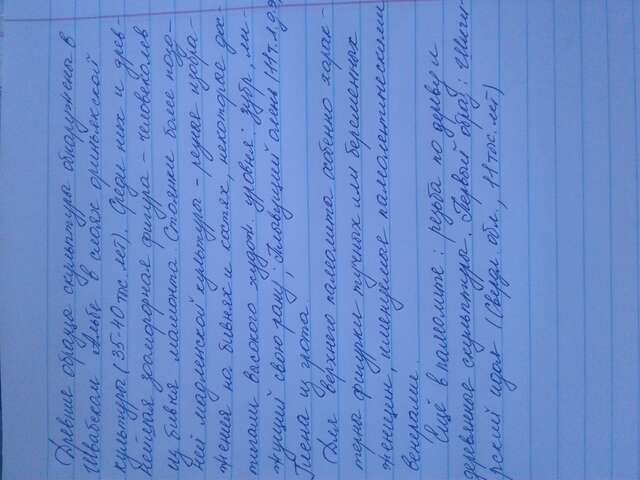 Древние образцы скульптуры обнаружены в
Швабском Альбе в слоях ориньякской
культуры (35-40 тыс лет). Среди них и древ-
нейшая зооморфная фигура - человеколев
из бивня мамонта. Стоянки более позд-
ней мадленской культуры - резные изобра-
жения на бивнях и костях, некоторые дос-
тигали высокого худож. уровня: зубр, ли-
жущий свою рану; Плывущий олень (11 т.л.д.э,
Гиена из грота.
Для верхнего палеолита особенно харак-
терны фигурки тучных или беременных
женщин, именуемые палеолитическими
венерами.
Ещё в палеолите: резьба по дереву и
деревянные скульптуры. Первый образ: Шиги-
рский идол (Свердл. обл., 11 тыс. лет)